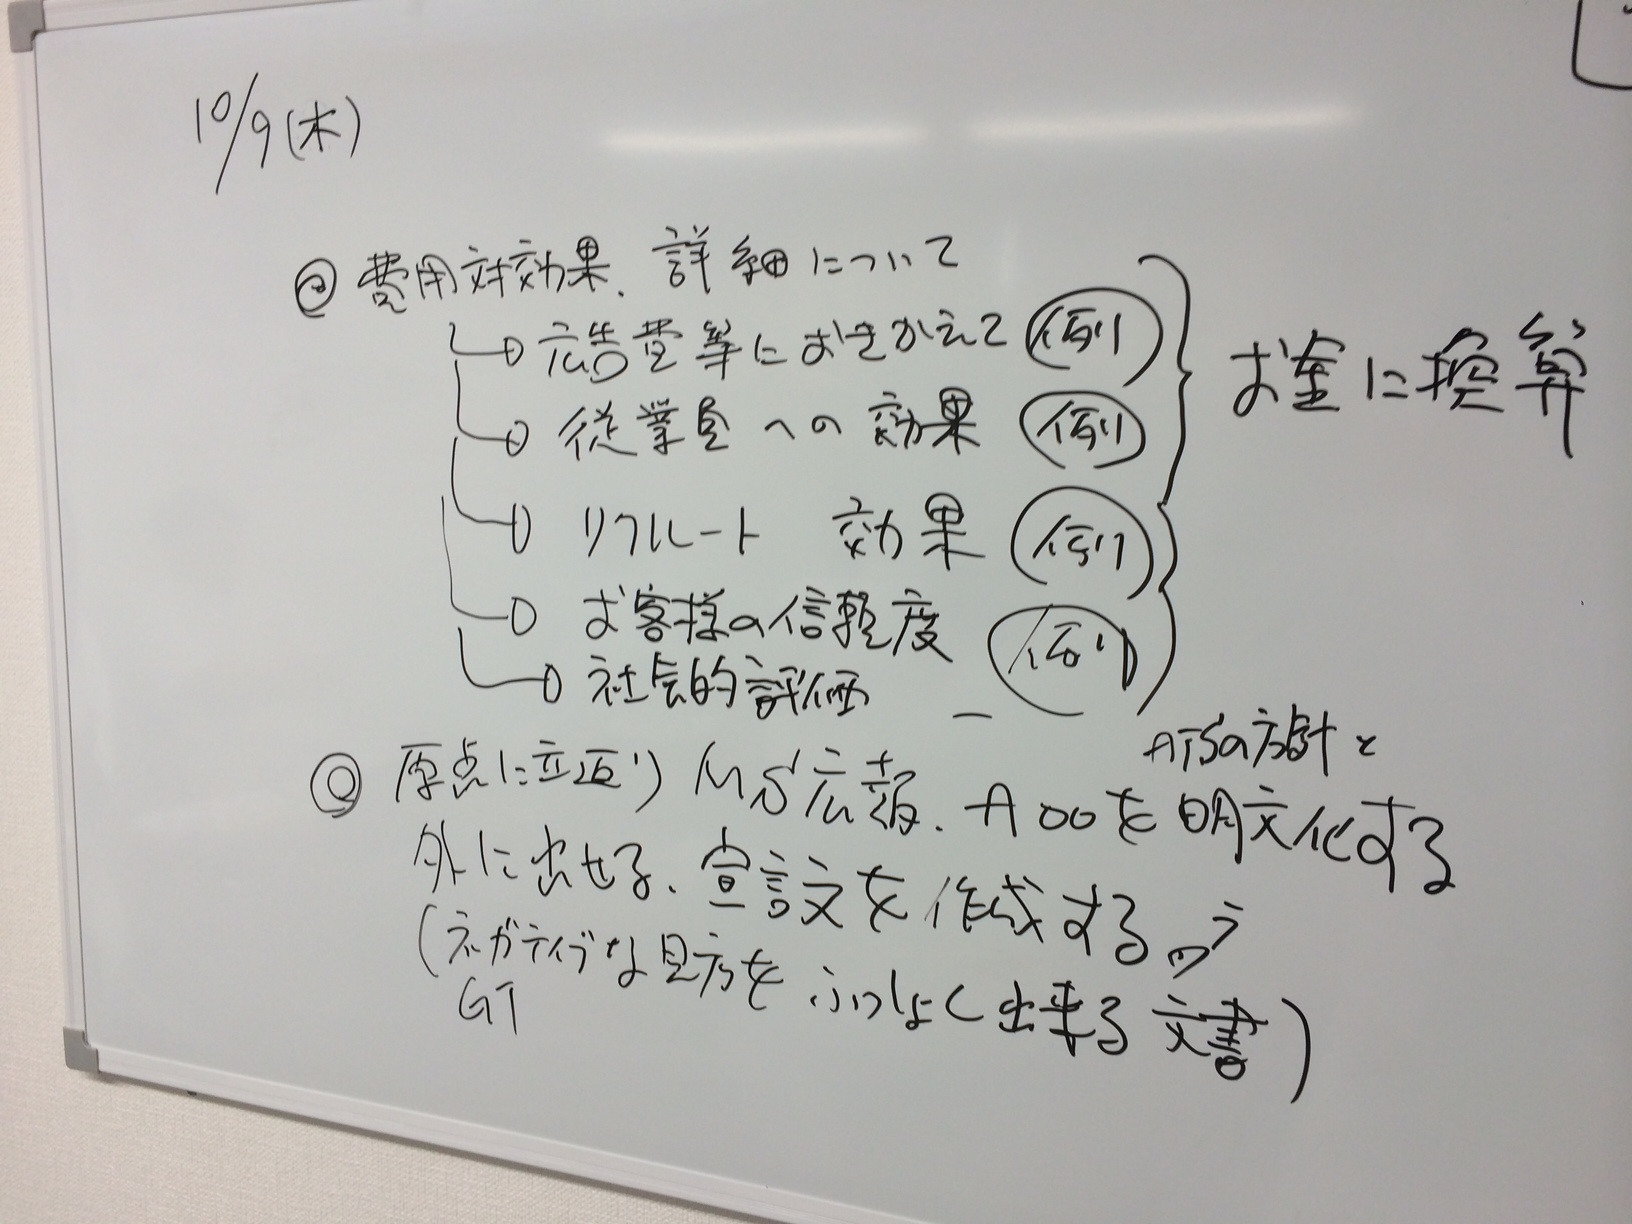 10/9(木)
◎費用対効果、詳細について
広告費等におきかえて 例
従業員への効果 例
リクルート 効果 例
お客様の信頼度 例
社会的評価
お金に換算
ATSの方針と
◎原点に立返り MS広報、A○○を明文化する
外に出せる、宣言文を作成する
(ネガティブな見方をふっしょく出来る文書)
GT